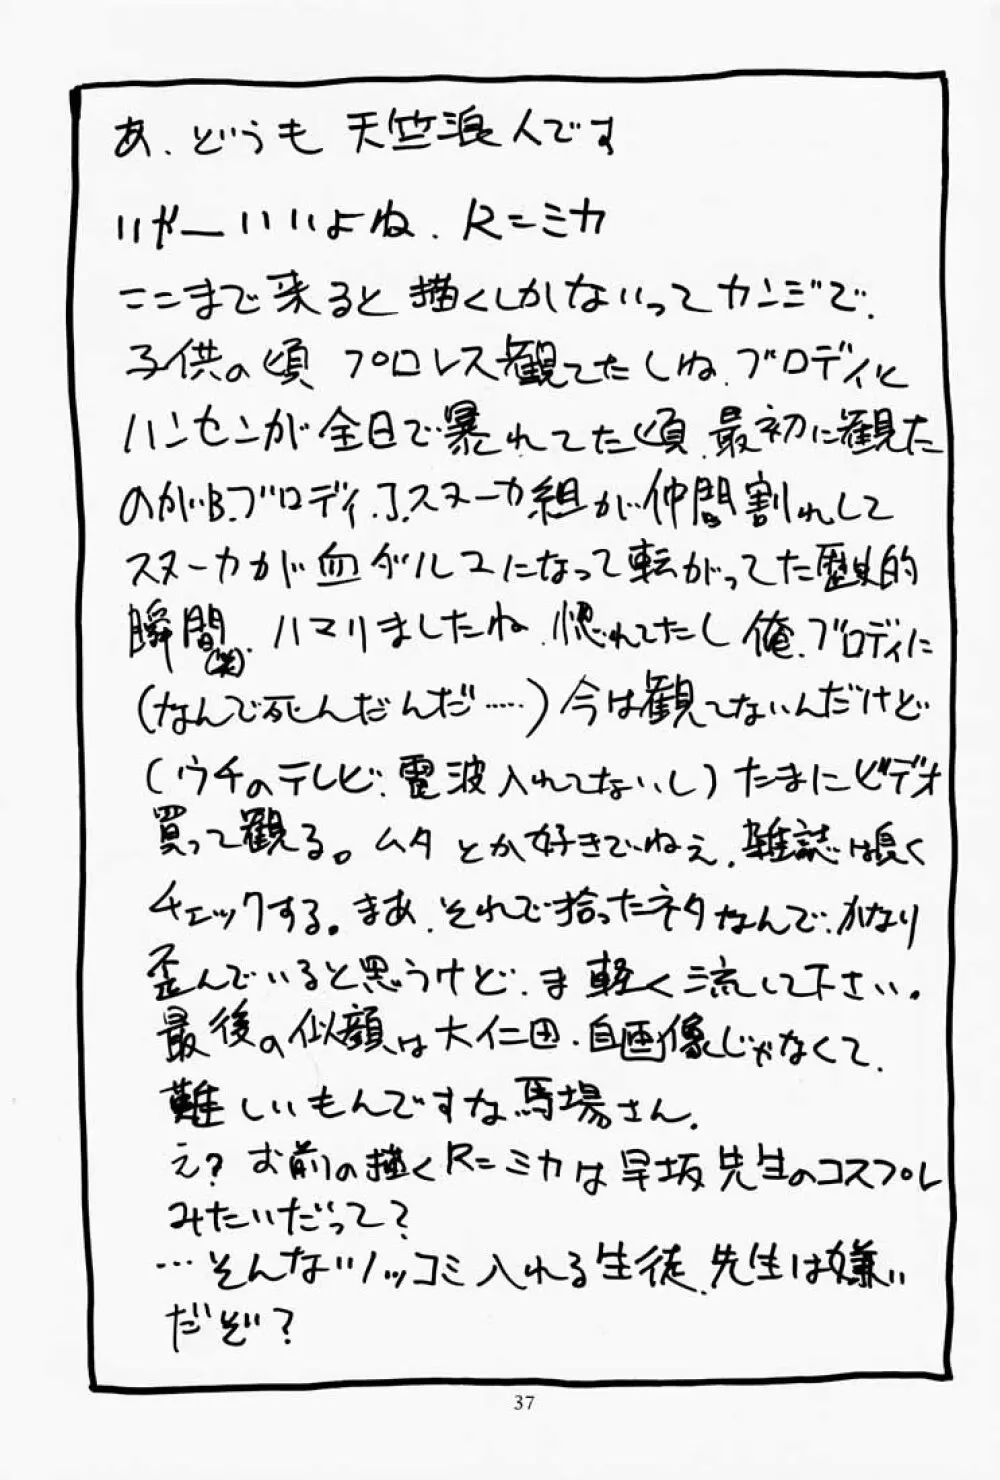 あ、どうも 天竺浪人です
いやーいいよね、R=ミカ
ここまで来ると描くしかないってカンジで、
子供の頃 プロレス観てたしね、ブロディと
ハンセンが全日で暴れてた頃、最初に観た
のがB.ブロディ.J.スヌーカ組が仲間割れして
スヌーカが血ダルマになって転がってた歴史的
瞬間(笑)。ハマりましたね、惚れてたし俺、ブロディに
(なんで死んだんだ……)今は観てないんだけど
(ウチのテレビ、電波入れてないし)たまにビデオ
買って観る。ムタとか好きでねえ、雑誌は良く
チェックする。まあ、それで拾ったネタなんで、かなり
歪んでいると思うけど、ま 軽く流して下さい。
最後の似顔は大仁田、自画像じゃなくて、
難しいもんですな馬場さん。
え?お前の描くR=ミカは早坂先生のコスプレ
みたいだって?
…そんなツッコミ入れる生徒、先生は嫌い
だぞ?
37